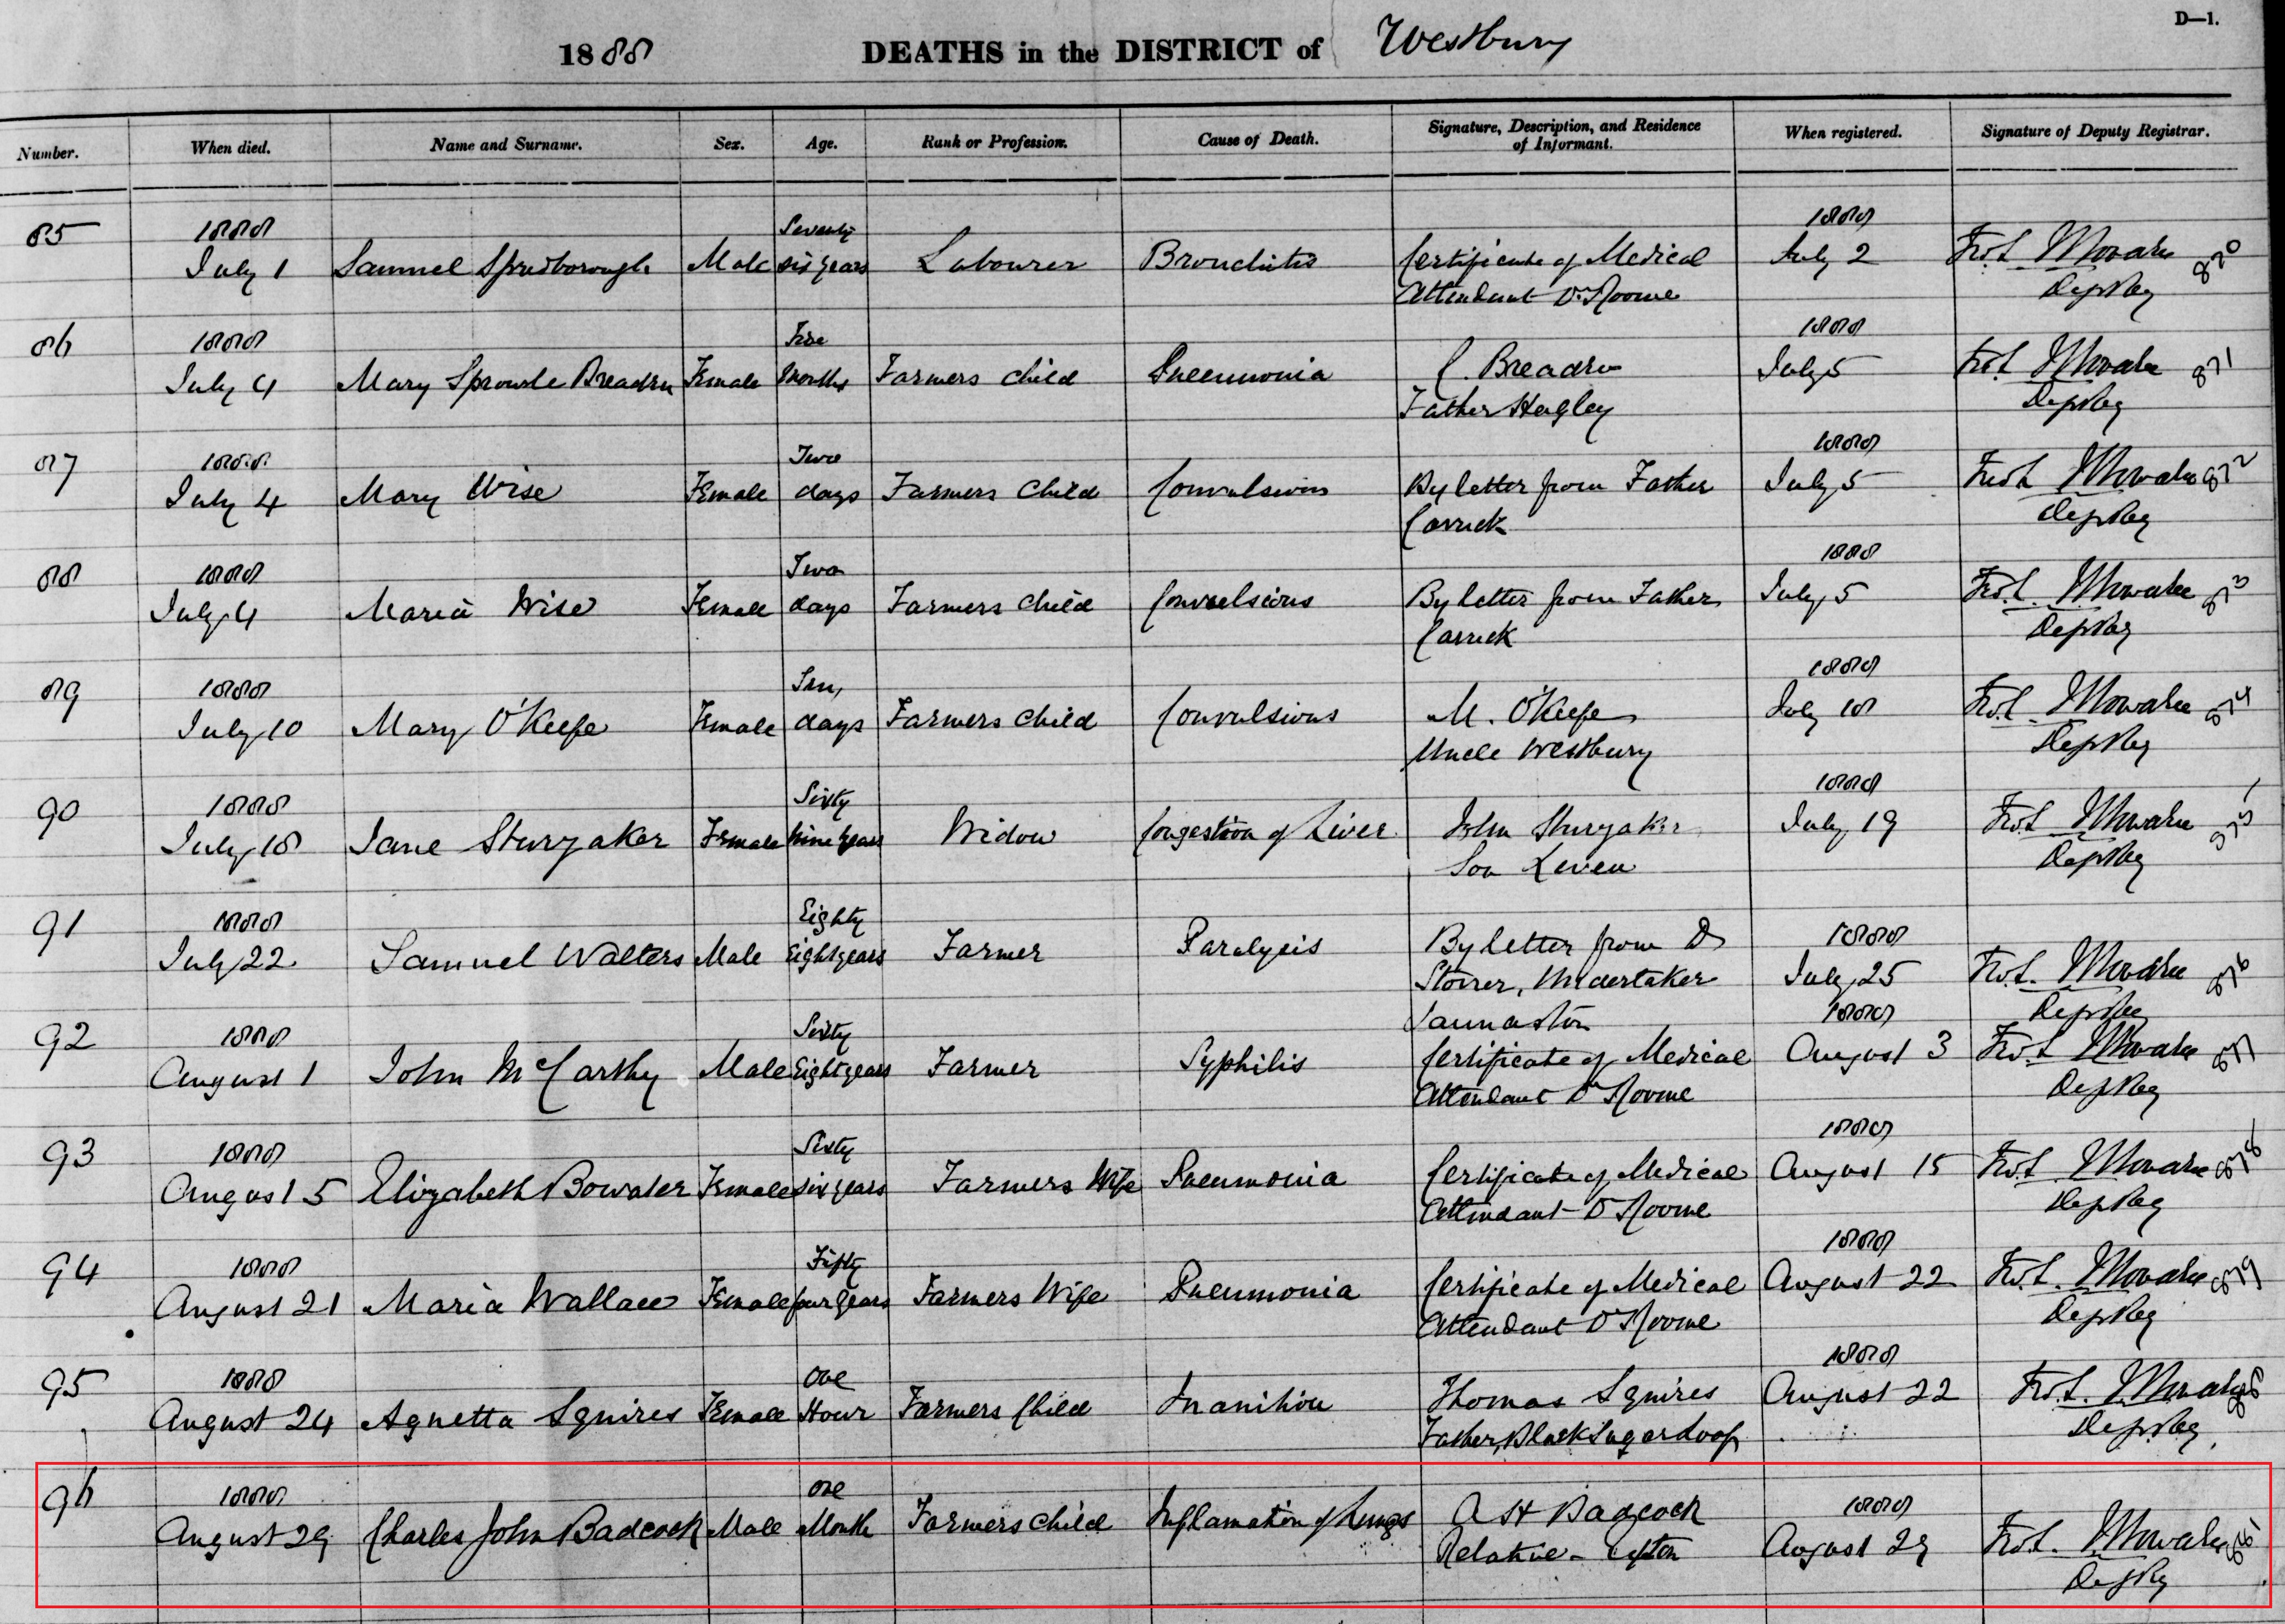 D—1.
1888 DEATHS in the DISTRICT of Westbury
Number. When died. Name and Surname. Sex. Age. Rank or Profession. Cause of Death. Signature, Description, and Residence of Informant. When registered. Signature of Deputy Registrar.
85 1888 Seventy 1888
July 1 Samuel Male six years Labourer Bronchitis Certificate of Medical July 2 870
Attendant Dr Roome Dep Reg
86 1888 1888
July 4 Mary Sprowle Breadon Female months Farmers Child Pneumonia C. Breadon July 5 871
Father Hagley Dep Reg
87 1888 Two 1888
July 4 Mary Wise Female days Farmers Child Convulsions By letter from Father July 5 872
Carrick Dep Reg
88 1888 Two 1888
July 4 Maria Wise Female days Farmers Child Convulsions By letter from Father July 5 873
Carrick Dep Reg
89 1888 Ten 1888
July 10 Mary O'Keefe Female days Farmers Child Convulsions M. O'Keefe July 18 874
Uncle Westbury Dep Reg
90 1888 Sixty 1888
July 18 Jane Sturzaker Female nine years Widow Congestion of Liver John Sturzaker July 19 875
Son Leven Dep Reg
91 1888 Eighty 1888
July 22 Samuel Walters Male Eight years Farmer Paralysis By letter from D July 25 876
Storrer, Undertaker
Launceston Dep Reg
92 1888 Sixty 1888
August 1 John McCarthy Male Eight years Farmer Syphilis Certificate of Medical August 3 877
Attendant Dr Roome Dep Reg
93 1888 Sixty 1888
August 5 Elizabeth Bowater Female six years Farmers Wife Pneumonia Certificate of Medical August 15 878
Attendant Dr Roome Dep Reg
94 1888 Fifty 1888
August 21 Maria Wallace Female four years Farmers Wife Pneumonia Certificate of Medical August 22 879
Attendant Dr Roome Dep Reg
95 1888 One 1888
August 24 Agnetta Squires Female Hour Farmers Child Inanition Thomas Squires August 22 880
Father, Black Sugarloaf Dep Reg
96 1888 One 1888
August 29 Charles John Badcock Male Month Farmers Child Inflamation of Lungs A H Badcock August 29 881
Relative - Dep Reg